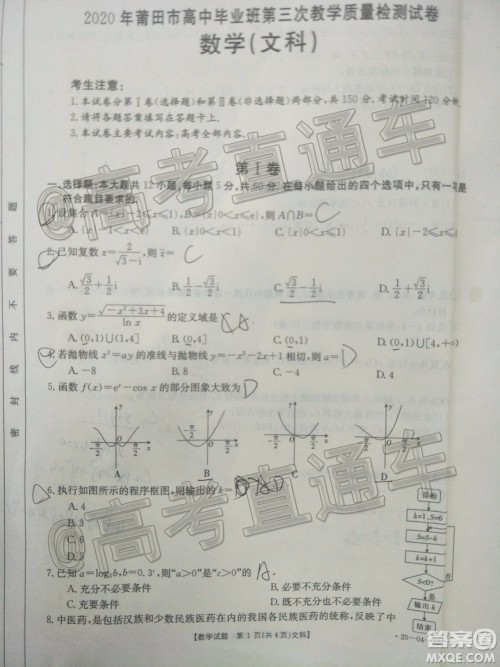 2020年莆田市高中毕业班第三次教学质量检测试卷
数学(文科)
考生注意:
1.本试卷分第Ⅰ卷(选择题)和第Ⅱ卷(非选择题)两部分,共150分。考试时间120分钟
2.请将各题答案填写在答题卡上。
3.本试卷主要考试内容:高考全部内容。
第Ⅰ卷
一、选择题:本大题共12小题,每小题5分,共60分.在每小题给出的四个选项中,只有一项是
符合题目要求的.
A∩B= C
2.已知复数z=2/(√3-i),则z̄= C
A.√3/2+1/2i B.1/2-√3/2i C.√3/2-1/2i D.1/2+√3/2i
3.函数y=√(-x²+3x+4)/ln x的定义域是 A.
A.(0,1)∪(1,4] B.(0,4] C.(0,1) D.(0,1)∪[4,+∞)
4.若抛物线x²=ay的准线与抛物线y=-x²-2x+1相切,则a= D
A.-8 B.8 C.-4 D.4
5.函数f(x)=eˣ-cos x的部分图象大致为 D
A B C D
6.执行如图所示的程序框图,则输出的k=
A.4
B.3
C.6
D.5
开始
k=1,S=6
S=S-k
S<0?
7.已知a=log₃b,b=0.3ᶜ,则“a>0”是“c>0”的 A.
A.充分不必要条件 B.必要不充分条件
C.充要条件 D.既不充分也不必要条件
8.中医药,是包括汉族和少数民族医药在内的我国各民族医药的统称,反映了中
【数学试题 第1页(共4页)文科】
·20-04
密 封 线 内 不 要 答 题
@高考直通车
@高考直通车
答案圈
MXQE.COM